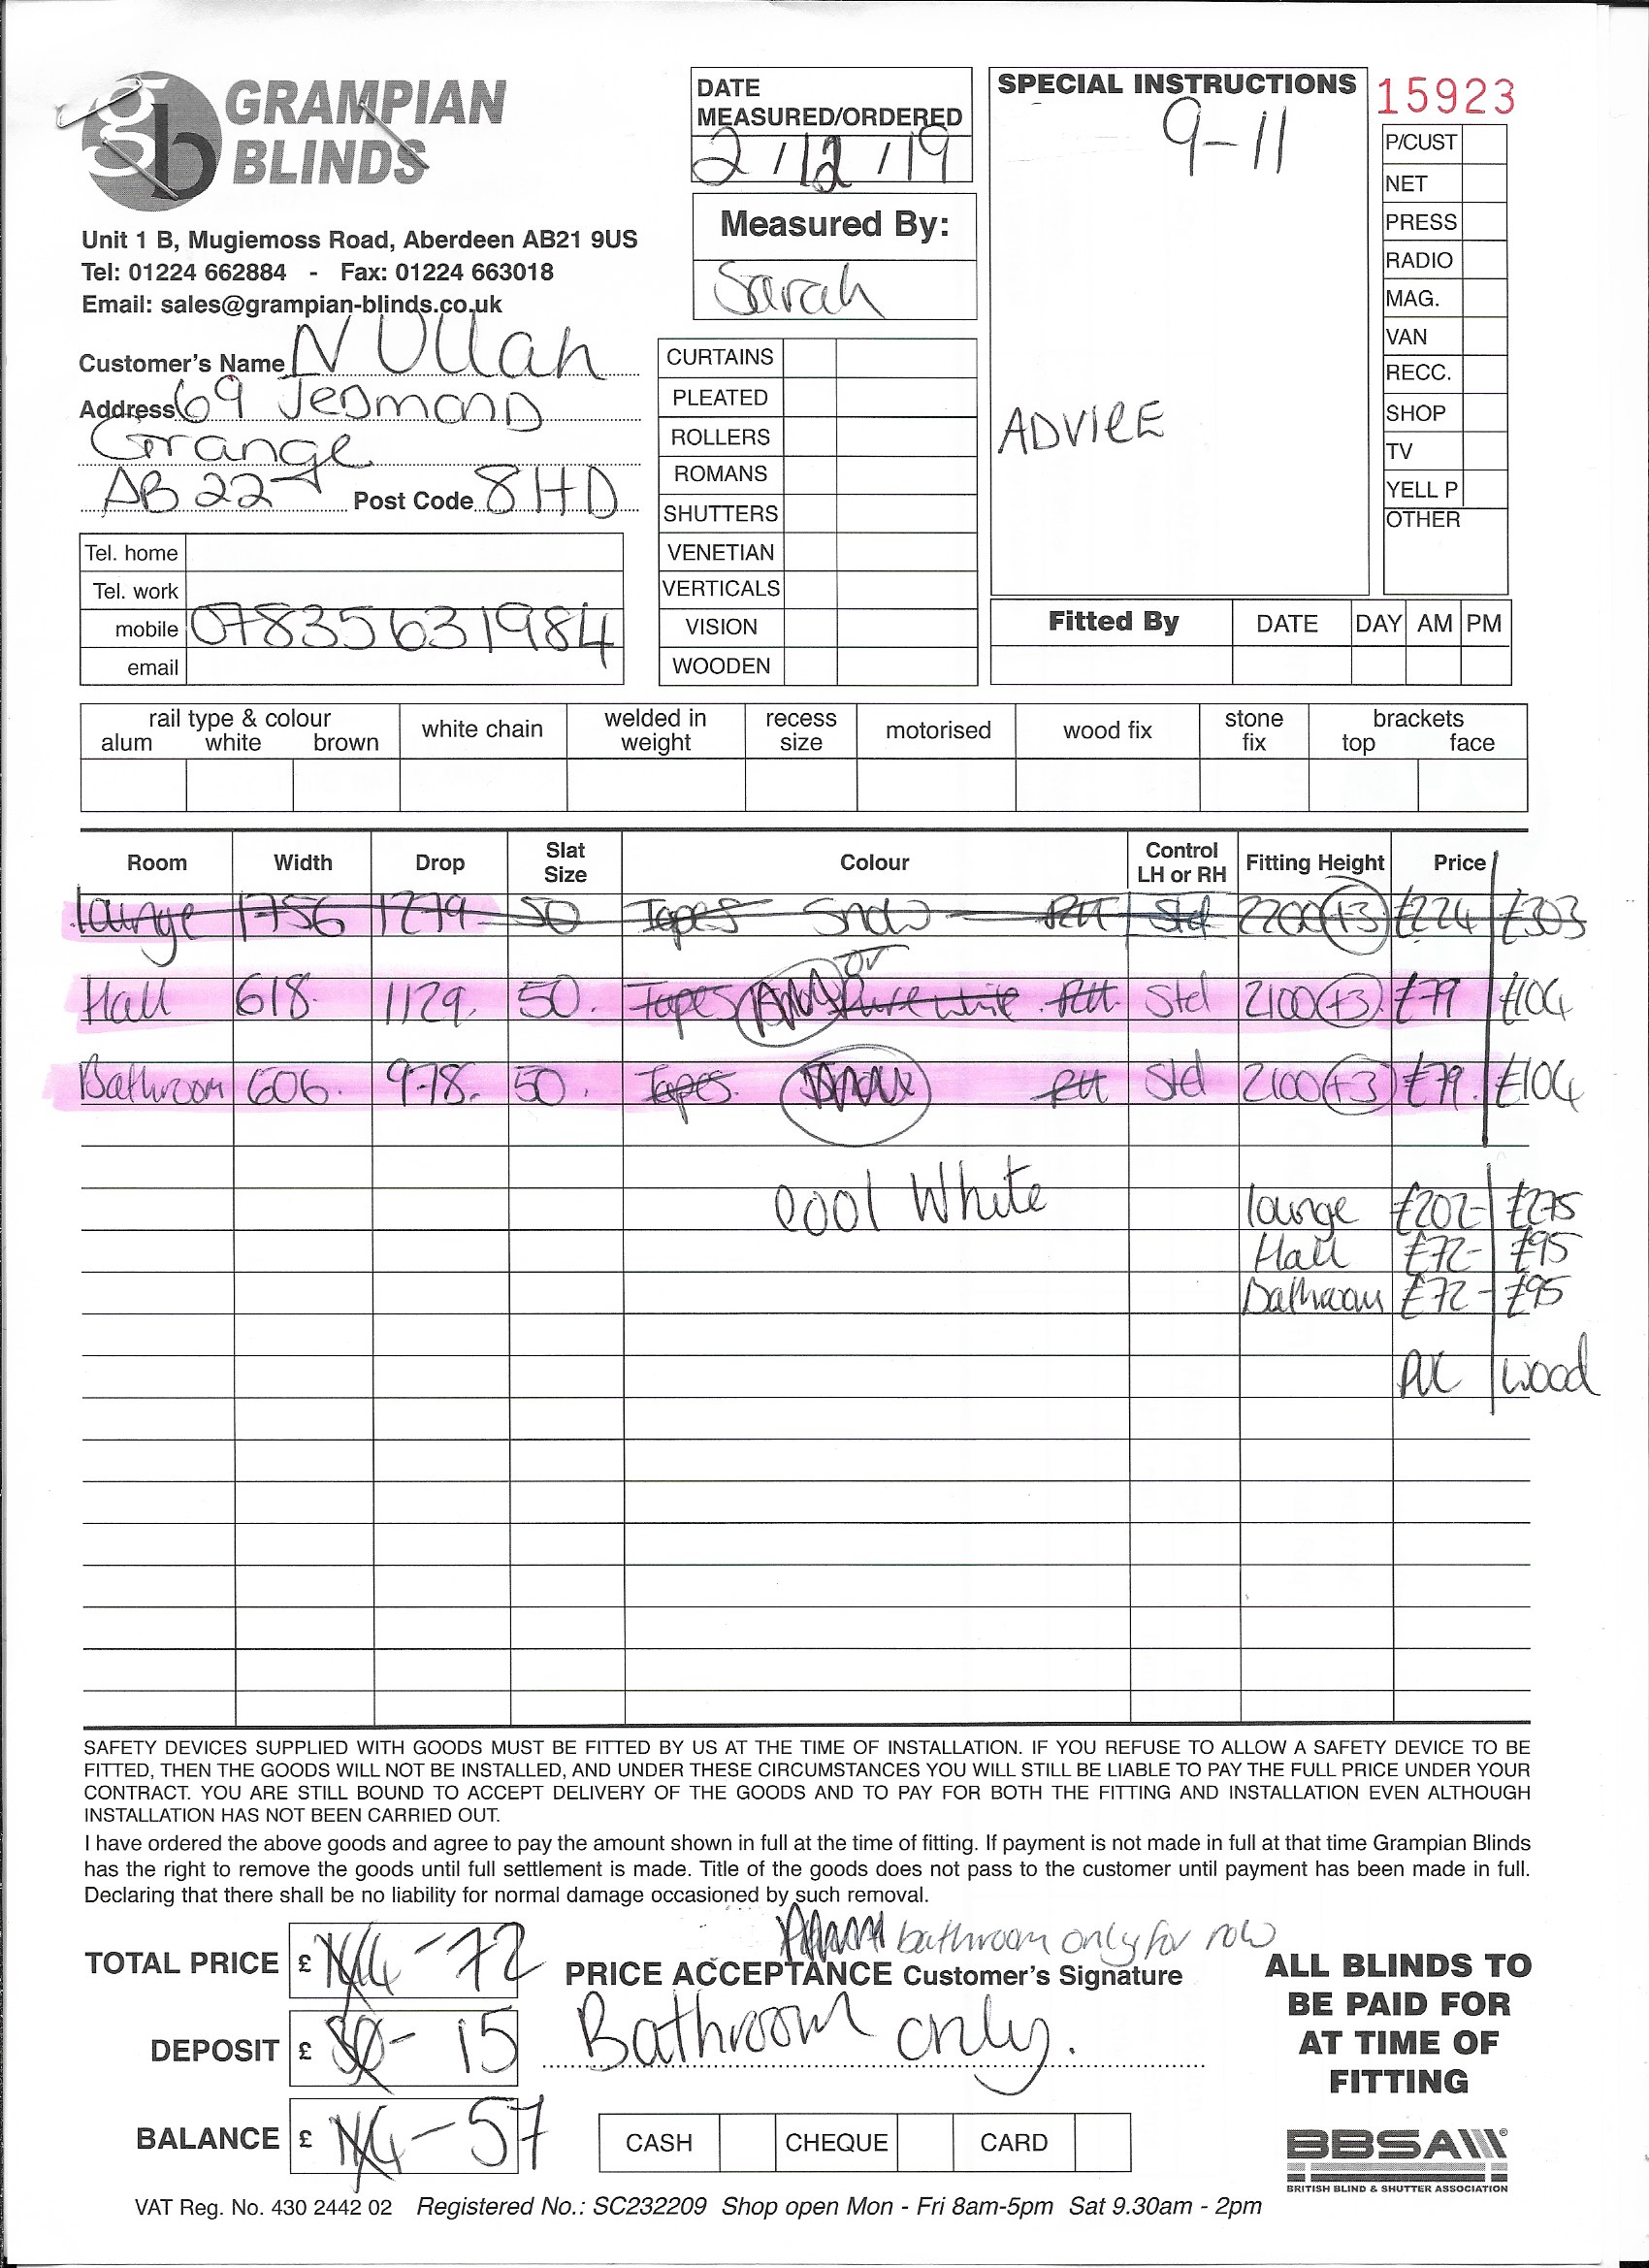 GRAMPIAN
BLINDS
Unit 1 B, Mugiemoss Road, Aberdeen AB21 9US
Tel: 01224 662884 - Fax: 01224 663018
Email: sales@grampian-blinds.co.uk
DATE
MEASURED/ORDERED
2/12/19
Measured By:
Sarah
SPECIAL INSTRUCTIONS
9-11
ADVICE
15923
P/CUST
NET
PRESS
RADIO
MAG.
VAN
RECC.
SHOP
TV
YELL P
OTHER
Customer's Name N Ullah
Address 69 Jesmond
Grange
AB22 Post Code 8HD
Tel. home
Tel. work
mobile 07835631984
email
CURTAINS
PLEATED
ROLLERS
ROMANS
SHUTTERS
VENETIAN
VERTICALS
VISION
WOODEN
Fitted By DATE DAY AM PM
rail type & colour white chain welded in weight recess size motorised wood fix stone fix brackets
alum white brown top face
Room Width Drop Slat Size Colour Control LH or RH Fitting Height Price
Lounge 1756 1279 50 Tapes Snow Std 2200 (+3) £224 £303
or
Hall 618. 1129. 50. Tapes Pure white. Std 2100 (+3) £79 £104
Bathroom 606. 978. 50. Tapes. Std 2100 (+3) £79. £104
Cool White
lounge £202- £275
Hall £72- £95
Bathroom £72- £95
PVC wood
SAFETY DEVICES SUPPLIED WITH GOODS MUST BE FITTED BY US AT THE TIME OF INSTALLATION. IF YOU REFUSE TO ALLOW A SAFETY DEVICE TO BE
FITTED, THEN THE GOODS WILL NOT BE INSTALLED, AND UNDER THESE CIRCUMSTANCES YOU WILL STILL BE LIABLE TO PAY THE FULL PRICE UNDER YOUR
CONTRACT. YOU ARE STILL BOUND TO ACCEPT DELIVERY OF THE GOODS AND TO PAY FOR BOTH THE FITTING AND INSTALLATION EVEN ALTHOUGH
INSTALLATION HAS NOT BEEN CARRIED OUT.
I have ordered the above goods and agree to pay the amount shown in full at the time of fitting. If payment is not made in full at that time Grampian Blinds
has the right to remove the goods until full settlement is made. Title of the goods does not pass to the customer until payment has been made in full.
Declaring that there shall be no liability for normal damage occasioned by such removal.
bathroom only for now
TOTAL PRICE £ -72
PRICE ACCEPTANCE Customer's Signature
Bathroom only.
DEPOSIT £ - 15
BALANCE £ - 57
CASH CHEQUE CARD
ALL BLINDS TO
BE PAID FOR
AT TIME OF
FITTING
BBSA
BRITISH BLIND & SHUTTER ASSOCIATION
VAT Reg. No. 430 2442 02 Registered No.: SC232209 Shop open Mon - Fri 8am-5pm Sat 9.30am - 2pm